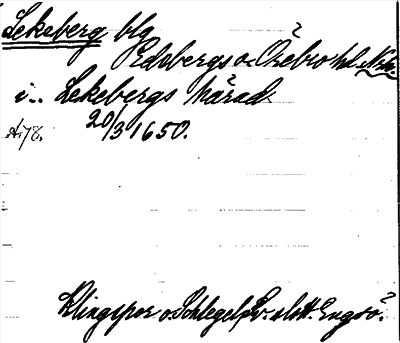 Lekeberg blg
Edsbergs o. Örebro hd Nrke.
i.. Lekebergs härad
A:78. 20/3 1650.
Klingspor o. Schlegel, Sv. slott. Engsö.